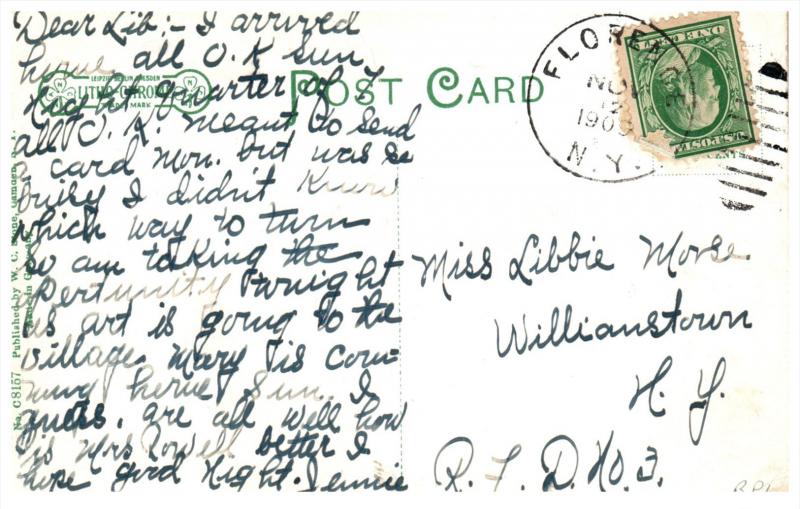 Dear Lib:- I arrived
home all O.K sun.
night quarter of 7
all O.K. meant to send
a card mon. but was so
busy I didn't know
which way to turn
so am taking the
opertunity tonight
as art is going to the
village. Mary is com-
ming home Sun. I
guess. are all well how
is Mrs Powell better I
hope good night. Jennie
POST CARD
LEIPZIG BERLIN DRESDEN
LITHO-CHROME
TRADE MARK
No. C8157 Published by W. C. Stone, Camden, N. Y.
FLOREN
NOV
1909
N.Y.
ONE CENT
U.S. POSTA
Miss Libbie Morse.
Willianstown
N. Y.
R. F. D. No. 3.